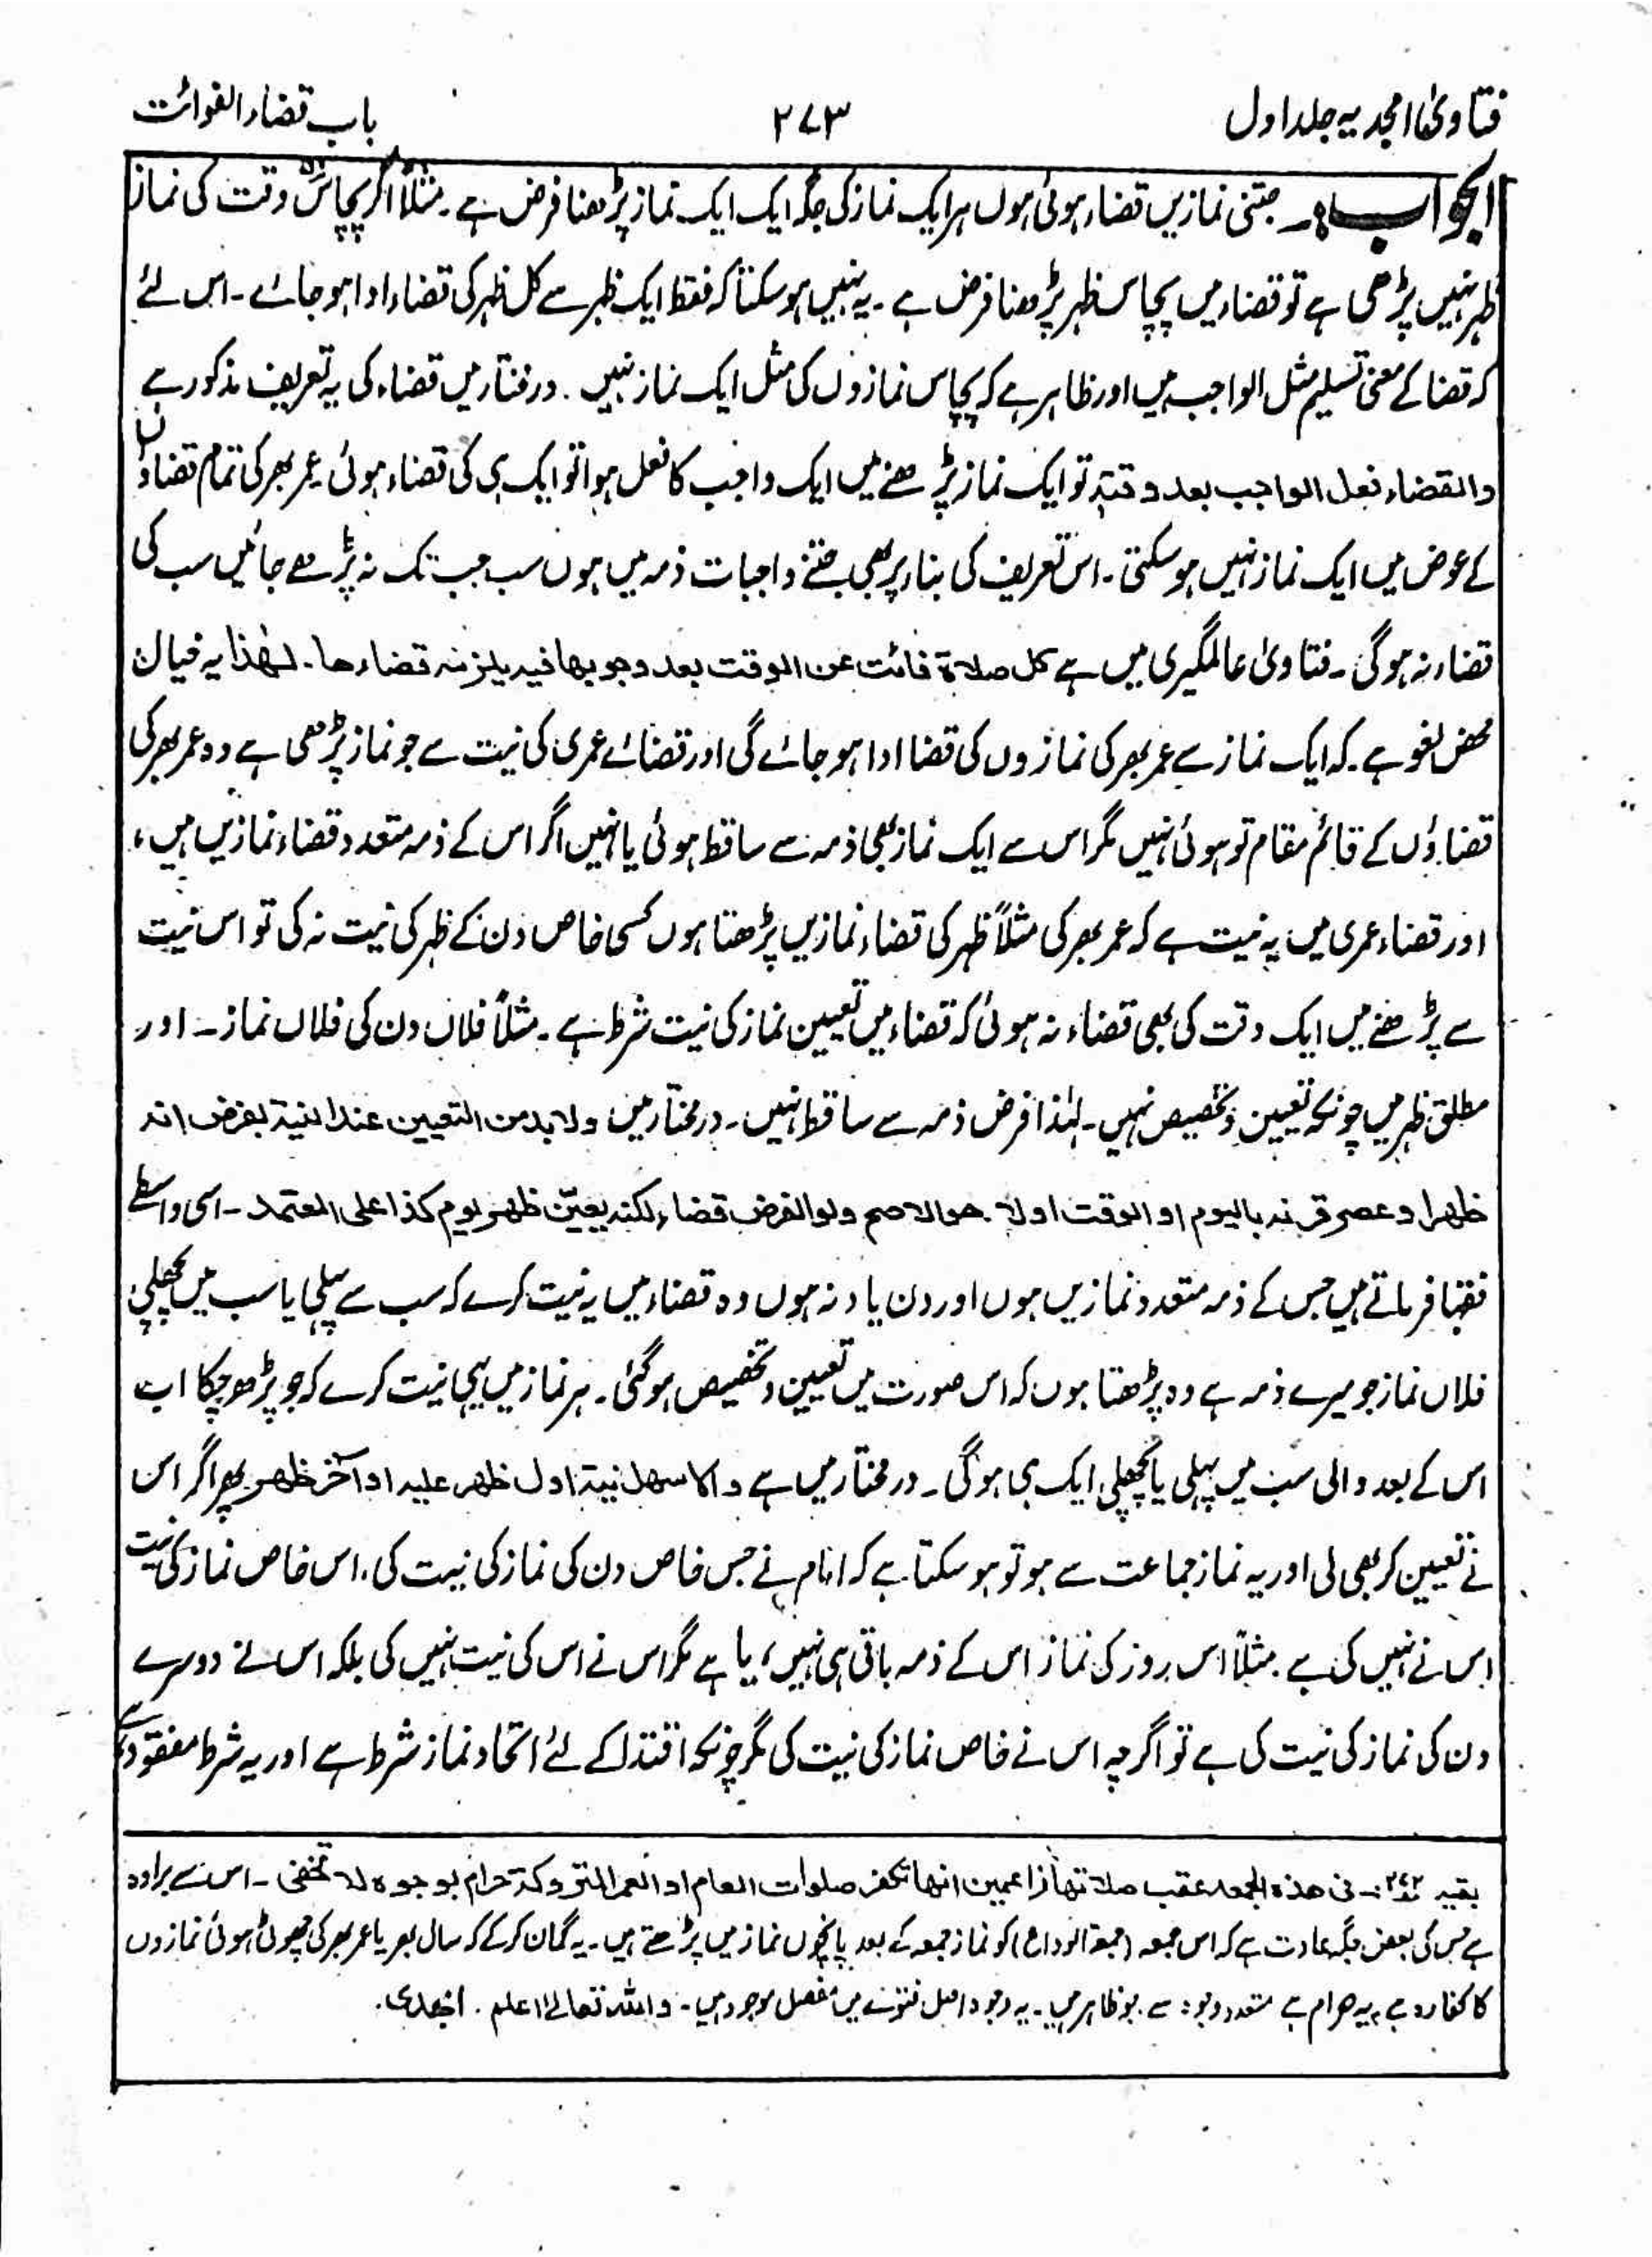 فتاویٰ امجدیہ جلد اول
۲۷۳
باب قضاء الفوائت
الجواب :۔ جتنی نمازیں قضاء ہوئی ہوں ہر ایک نماز کی جگہ ایک ایک نماز پڑھنا فرض ہے ۔ مثلاً اگر پچاس وقت کی نماز
ظہر نہیں پڑھی ہے تو قضاء میں پچاس ظہر پڑھنا فرض ہے ۔ یہ نہیں ہو سکتا کہ فقط ایک ظہر سے کل ظہر کی قضاء ادا ہو جائے ۔ اس لئے
کہ قضا کے معنی تسلیم مثل الواجب ہیں اور ظاہر ہے کہ پچاس نمازوں کی مثل ایک نماز نہیں ۔ درمختار میں قضاء کی یہ تعریف مذکور ہے
والقضاء فعل الواجب بعد وقتہ تو ایک نماز پڑھنے میں ایک واجب کا فعل ہوا تو ایک ہی کی قضاء ہوئی عمر بھر کی تمام قضاؤں
کے عوض میں ایک نماز نہیں ہو سکتی ۔ اس تعریف کی بناء پر بھی جتنے واجبات ذمہ میں ہوں سب جب تک نہ پڑھے جائیں سب کی
قضاء نہ ہوگی ۔ فتاویٰ عالمگیری میں ہے کل صلاۃ فائت عن الوقت بعد وجوبھا فیہ یلزمہ قضاءھا ۔ لھٰذا یہ خیال
محض لغو ہے ۔ کہ ایک نماز سے عمر بھر کی نمازوں کی قضا ادا ہو جائے گی اور قضائے عمری کی نیت سے جو نماز پڑھی ہے وہ عمر بھر کی
قضاؤں کے قائم مقام تو ہوئی نہیں مگر اس سے ایک نماز بھی ذمہ سے ساقط ہوئی یا نہیں اگر اس کے ذمہ متعدد قضاء نمازیں ہیں ،
اور قضاء عمری میں یہ نیت ہے کہ عمر بھر کی مثلاً ظہر کی قضاء نمازیں پڑھتا ہوں کسی خاص دن کے ظہر کی نیت نہ کی تو اس نیت
سے پڑھنے میں ایک وقت کی بھی قضاء نہ ہوئی کہ قضاء میں تعیین نماز کی نیت شرط ہے ۔ مثلاً فلاں دن کی فلاں نماز ۔ اور
مطلق ظہر میں چونکہ تعیین و تخصیص نہیں ۔ لہٰذا فرض ذمہ سے ساقط نہیں ۔ درمختار میں ولا بد من التعیین عند النیۃ لفرض انہ
ظھر او عصر قرنہ بالیوم او الوقت اولا ۔ ھو الاصح ولو الفرض قضاء لکنہ یعیّن ظھر یوم کذا علی المعتمد ۔ اسی واسطے
فقہا فرماتے ہیں جس کے ذمہ متعدد نمازیں ہوں اور دن یاد نہ ہوں وہ قضاء میں یہ نیت کرے کہ سب سے پہلی یا سب میں پچھلی
فلاں نماز جو میرے ذمہ ہے وہ پڑھتا ہوں کہ اس صورت میں تعیین و تخصیص ہوگئی ۔ ہر نماز میں یہی نیت کرے کہ جو پڑھ چکا اب
اس کے بعد والی سب میں پہلی یا پچھلی ایک ہی ہوگی ۔ درمختار میں ہے والاسھل نیۃ اول ظھر علیہ او آخر ظھر پھر اگر اس
نے تعیین کر بھی لی اور یہ نماز جماعت سے ہو تو ہو سکتا ہے کہ امام نے جس خاص دن کی نماز کی نیت کی ، اس خاص نماز کی نیت
اس نے نہیں کی ہے ۔ مثلاً اس روز کی نماز اس کے ذمہ باقی ہی نہیں ، یا ہے مگر اس نے اس کی نیت نہیں کی بلکہ اس نے دوسرے
دن کی نماز کی نیت کی ہے تو اگرچہ اس نے خاص نماز کی نیت کی مگر چونکہ اقتدا کے لئے اتحاد نماز شرط ہے اور یہ شرط مفقود ہے
بقیہ ۲۷۲ :۔ فی ھذہ الجمعہ عقب صلاتھا زاعمین انھا تکفر صلوات العام او العمر المتروکۃ حرام بوجوہ لا تخفی ۔ اس سے برا وہ
ہے جس کی بعض جگہ عادت ہے کہ اس جمعہ (جمعۃ الوداع) کو نماز جمعہ کے بعد پانچوں نمازیں پڑھتے ہیں ۔ یہ گمان کر کے کہ سال بھر یا عمر بھر کی چھوٹی ہوئی نمازوں
کا کفارہ ہے ، یہ حرام ہے متعدد وجوہ سے جو ظاہر ہیں ۔ یہ وجوہ اصل فتوے میں مفصل موجود ہیں ۔ واللہ تعالیٰ اعلم . امجدی .